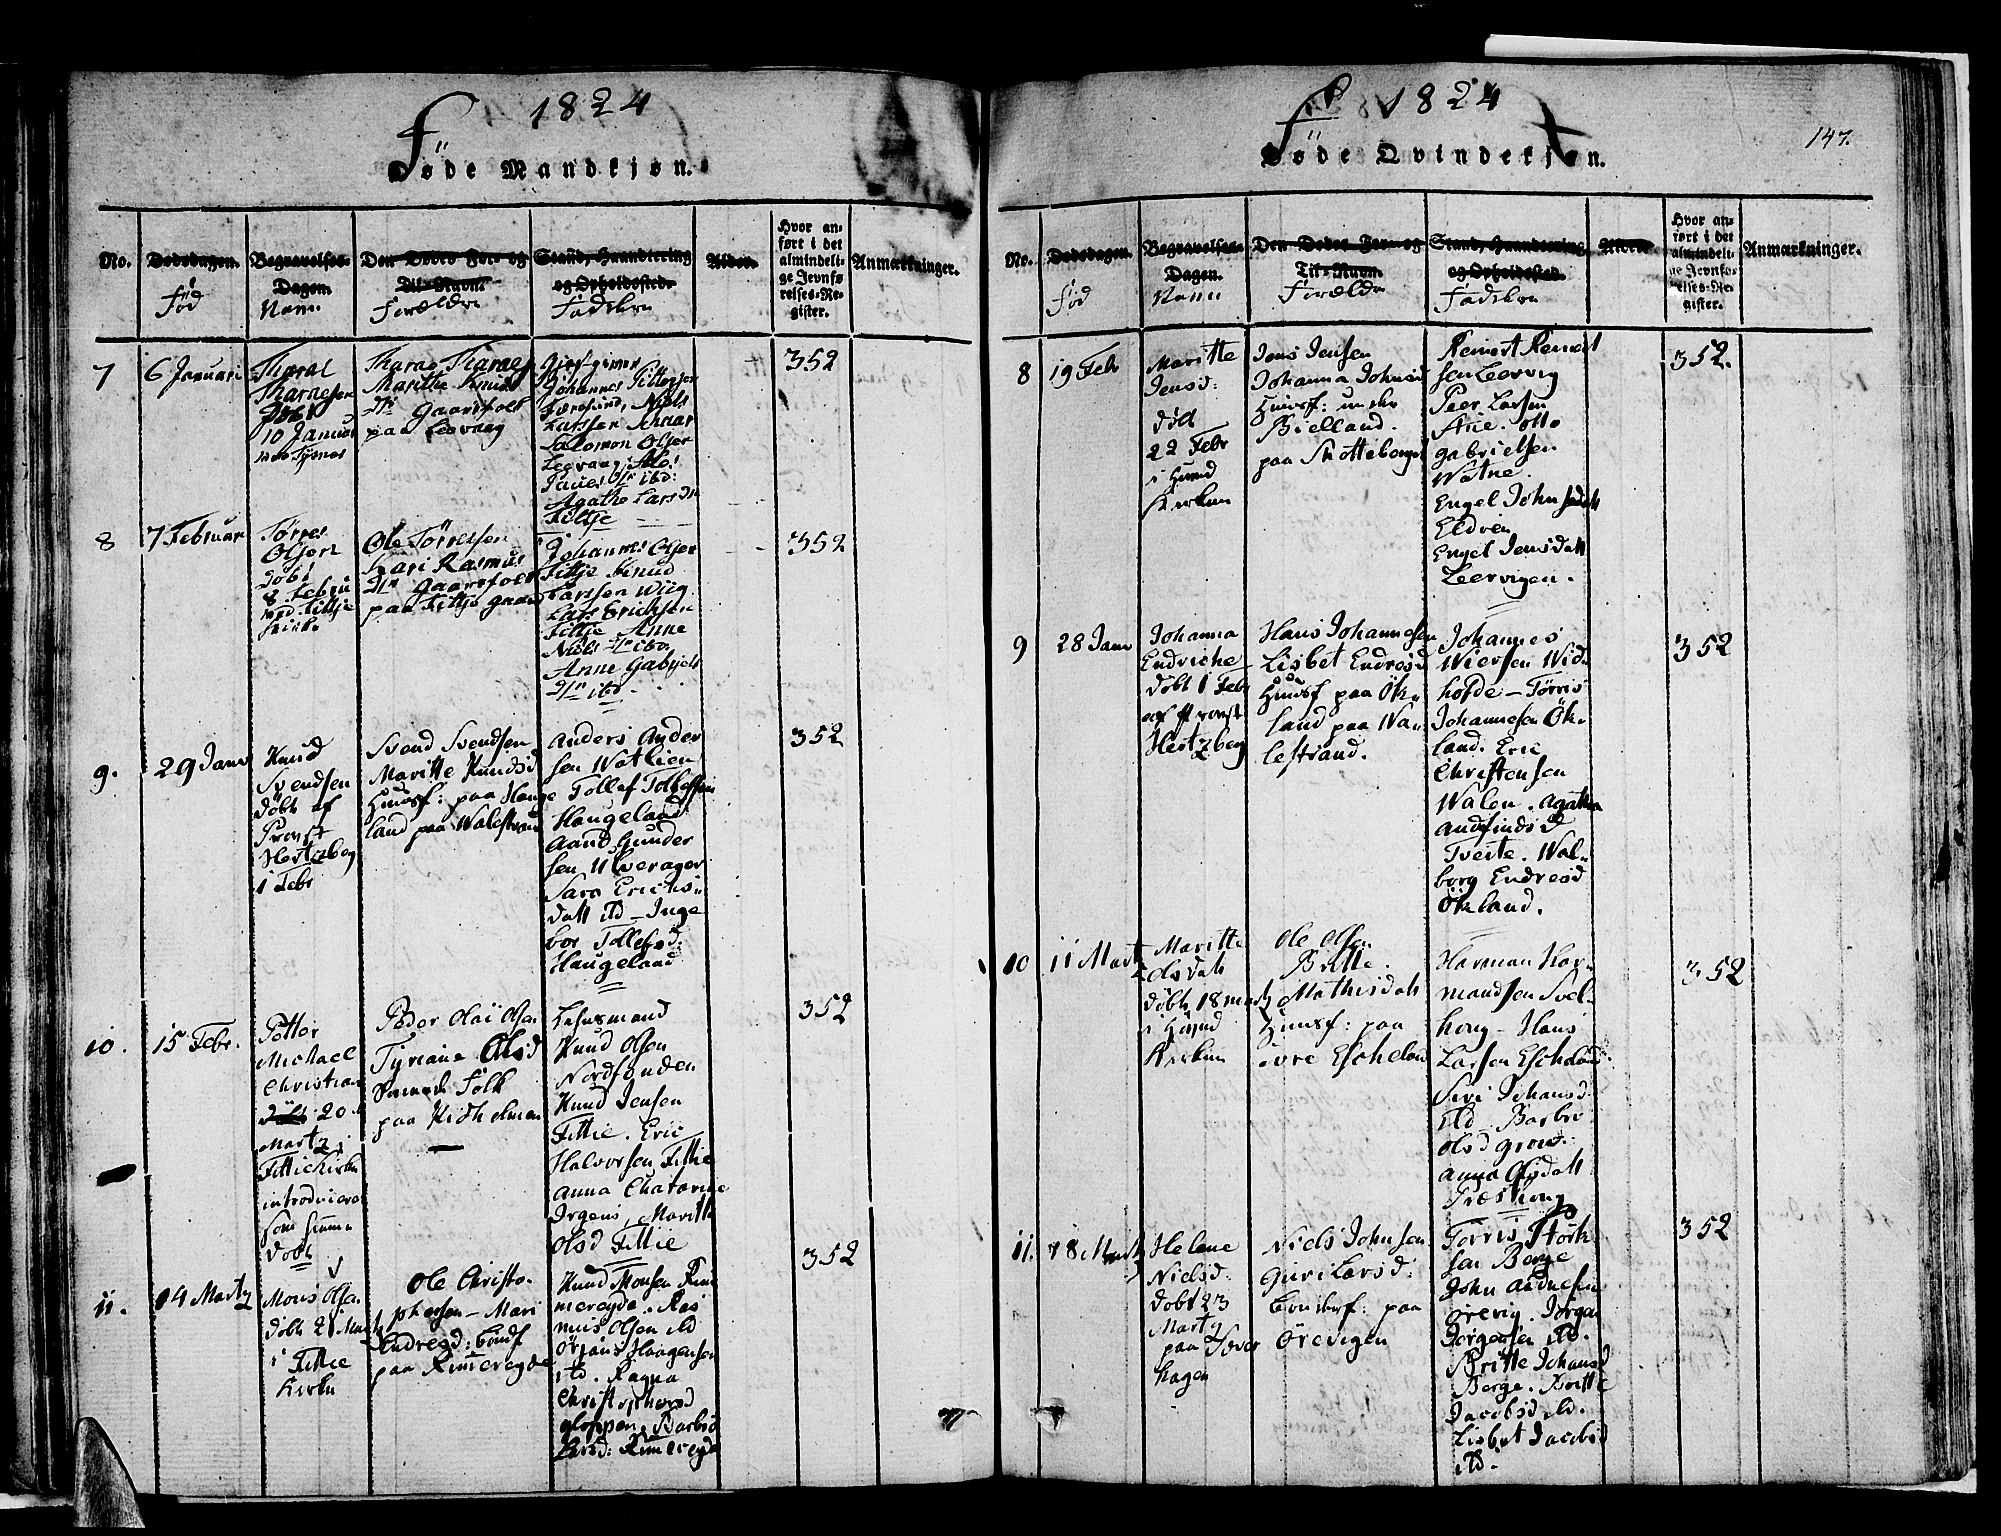 1824
Føde Mandkjøn.
No.
Dødsdagen.
Fød
Begravelses-
Dagen.
Navn
Den Dødes For- og
Til-Navn.
Forældre
Stand, Haandtering
og Opholdssted.
Fadskre
Alder.
Hvor an-
ført i det
almindeli-
ge Jevnfø
relses-Re-
gister.
Anmærkninger.
7
6 Januari
10 Januar
Gaarsfolk
paa
Johannes
Niels
Larssen
Salomon Olsen
Agathe Larsdr
Fittje
352
8
7 Februar
Tørres
Olsen
døbt
8 Febru
Fittje
Kirk.
Ole Tørressen
Kari Rasmus
Dr Gaarsfolk
paa Fittje gaard
Johannes Olsen
Fittje Knud
Larssen Wiig
Lars Erichsen
Fittje Anne
Niels Dr ibd.
Anne Gabriels
Dr ibd.
352
9.
29 Janv
Knud
Svendsen
døbt af
Provst
Hertzberg
1 Febr
Svend Svendsen
Maritte Knudsd
Huusf: paa Hauge
land paa Walestrand
Anders Ander
sen Watlien
Tollef Tollefsen
Haugeland
Aand Gunder
sen Ulverager
Sara Erichs-
datt ibd - Inge
bor Tollefsd:
Haugeland
352
10.
15 Febr.
Petter
Michael
Christian
20
Martz i
Fittie Kirke
introduceret
som hiemme
døbt
Peder Olai Olsen
Olsd
Folk
paa Kidholmen
Lehnsmand
Knud Olsen
Nordfonden
Knud Jensen
Fittie. Eric
Halvorsen Fittie
Anna Chatarine
Irgens, Maritte
Olsd Fittie
352
11.
14 Martz
Mons Olsen
døbt 21 Martz
i Fittie
Kirke
Ole Christo-
phersen - Mari
Endresd: bondf
paa Rimereyde
Knud Monsen Rim
mereyde. Ras
mus Olsen ibd
Ørjans Haagensen
ibd. Ragna
Christophersd
gloppen, Barbro
Rimereyde
352
1824
147.
Føde Qvindekjøn.
No.
Dødsdagen.
Fød
Begravelses-
Dagen.
Navn
Den Dødes For- og
Til-Navn.
Forældre
Stand, Haandtering
og Opholdssted.
Fadskre
Alder.
Hvor an-
ført i det
almindeli-
ge Jevnfø-
relses-Re-
gister.
Anmærkninger.
8
19 Feb
Maritte
Jensd:
død
22 Febr
i
Kirken
Jens Jensen
Johanna Johnsd
Huusf: under
Bielland.
paa Skotteberget
Reinert Reinert
sen Leervig
Peer Larsen
Arie. Otto
Gabrielsen
Watne.
Engel Johnsdatt
Eldøen
Engel Jensdatt
Leervigen.
352.
9
28 Janv
Johanna
Endriche
døbt 1 Feb
af Provst
Hertzberg
Hans Johannesen
Lisbet Endresd
Huusf paa Øk-
land paa Wa-
lestrand.
Johannes
Wiersen Wid-
hofde - Tørris
Johannesen Øk-
land. Eric
Christensen
Walen. Agatha
Andfindsd
Tveite. Wal-
borg Endresd
Økland.
352
10
11 Martz
Maritte
Olsdatt
døbt 18 Martz
i
Kirken
Ole Olsen
Britte
Mathisdatt
Huusf: paa
Øvre Escheland
Harman Har-
mandsen Svel-
hong - Hans
Larsen Escheland
Siri Johansd
ibd - Barbro
Olsd
Anna Olsdatt
352
11.
18 Martz
Helene
Nielsd:
døbt 23
Martz
paa
hagen
Niels Johnsen
Guri Larsd:
bondef: paa
Ørevigen
Torris Størk-
sen Berge
John Aadnesen
Ørevig. Jørgen
Jørgensen ibd.
Britte Johansd
Berge. Britte
Jacobsd ibd.
Lisbet Jacobsd
ibd.
352